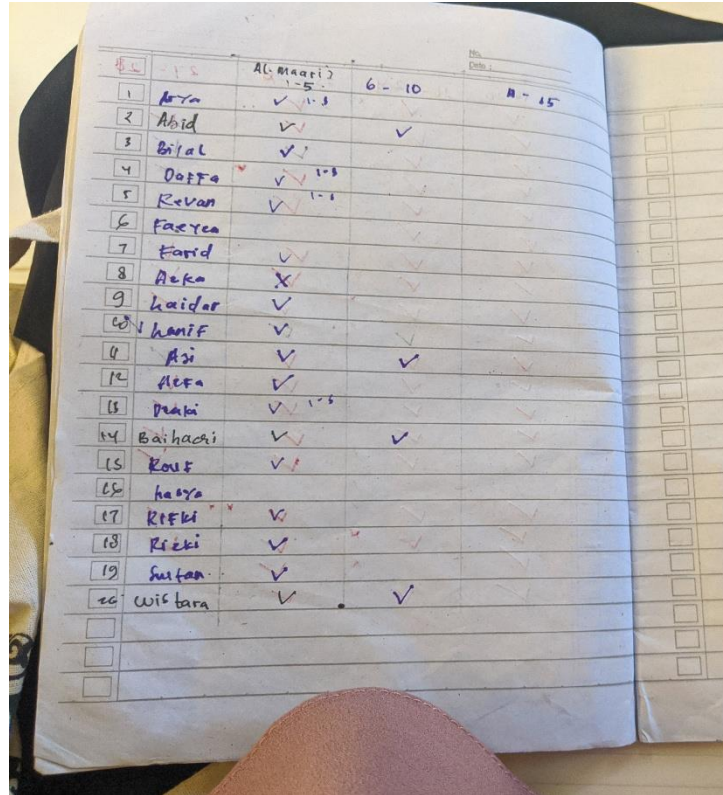 No.
Date :
Al-Maari)
1-5. 6 - 10 11 - 15
1 Arya ✓ 1-3
2 Abid ✓ ✓
3 Bilal ✓
4 Daffa ✓ 1-3
5 Revan ✓
6
7 Farid ✓
8 Azka X
9 haidar ✓
10 hanif ✓
11 Azi ✓ ✓
12 ✓
13 Dzaki ✓
14 Baihaqi ✓ ✓
15 Rouf ✓
16 hasya
17 Rifki ✓
18 Rizki ✓
19 Sultan ✓
20 wistara ✓ ✓